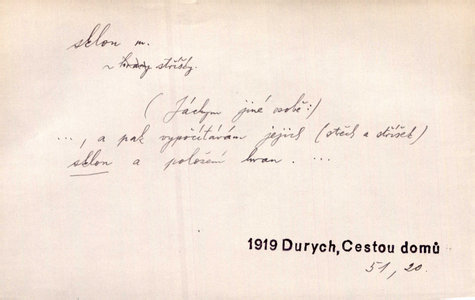 sklon m.
~ střísky.
( Jáchym jiné osobě:)
..., a pak vypočítávám jejich (otěch a oříšek)
sklon a položení hran. ...
1919 Durych, Cestou domů
51, 20.